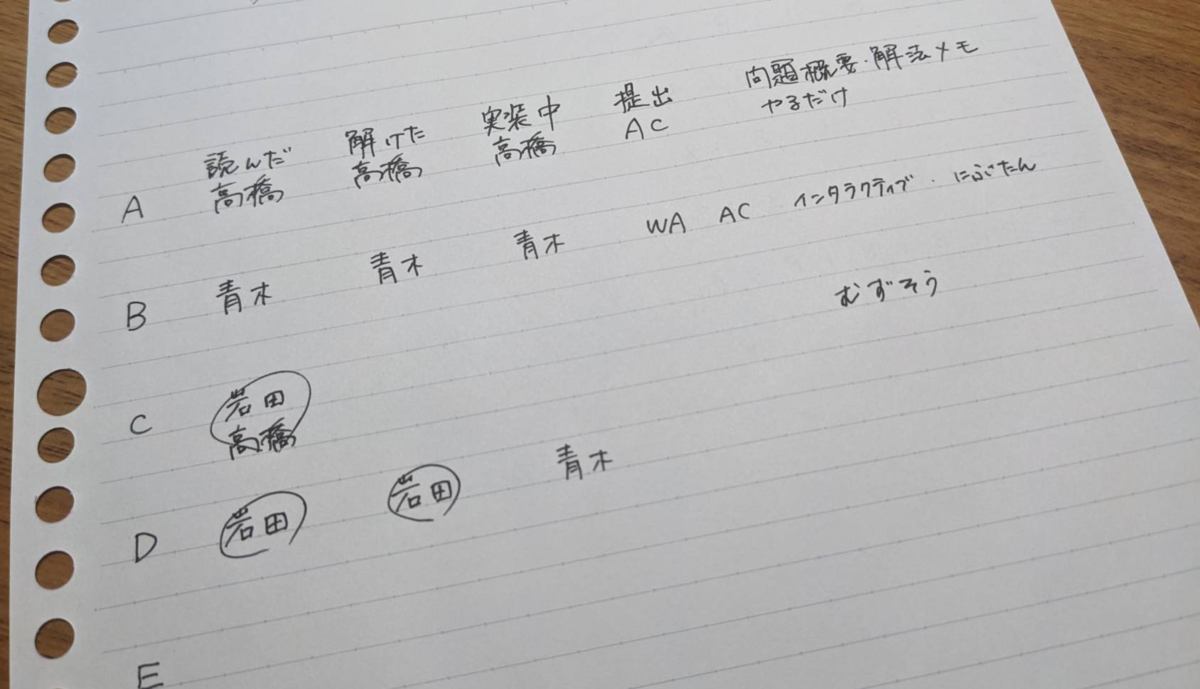 読んだ 解けた 実装中 提出 問題概要・解法メモ
A 高橋 高橋 高橋 AC やるだけ
B 青木 青木 青木 WA AC インタラクティブ・にぶたん
C 岩田 むずそう
高橋
D 岩田 岩田 青木
E